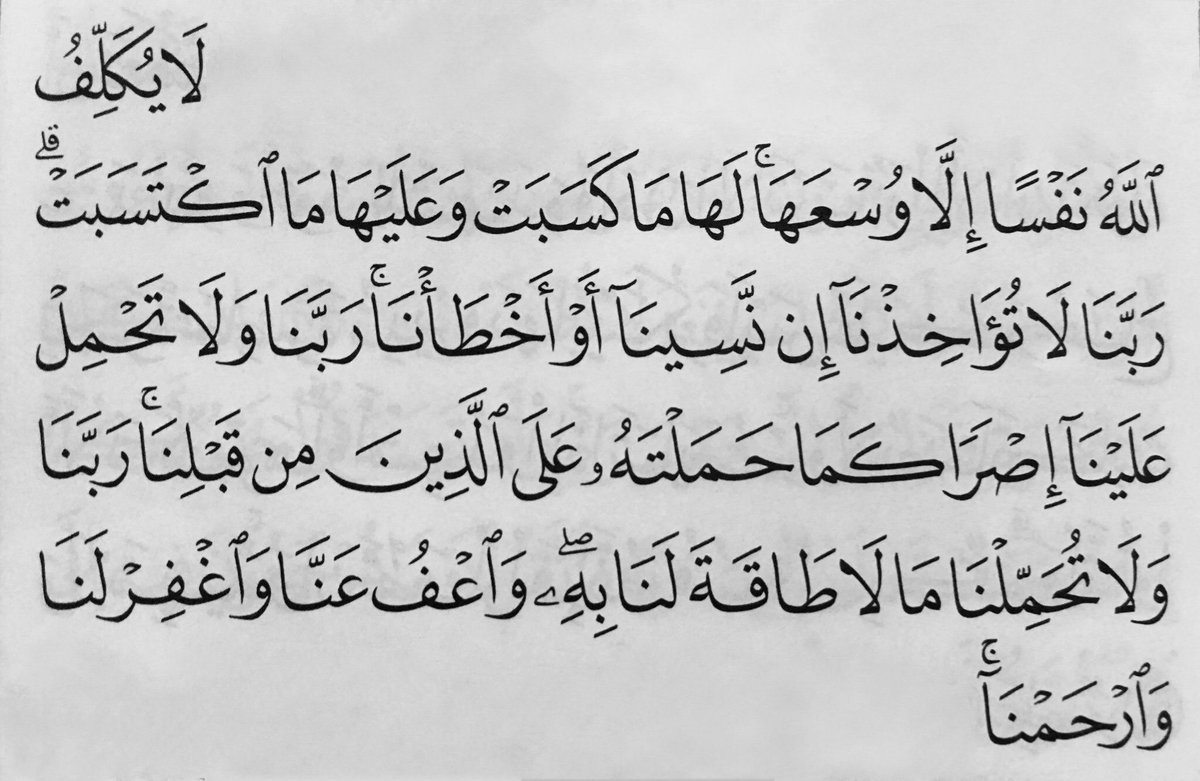 لَا يُكَلِّفُ
ٱللَّهُ نَفۡسًا إِلَّا وُسۡعَهَاۚ لَهَا مَا كَسَبَتۡ وَعَلَيۡهَا مَا ٱكۡتَسَبَتۡۗ
رَبَّنَا لَا تُؤَاخِذۡنَآ إِن نَّسِينَآ أَوۡ أَخۡطَأۡنَاۚ رَبَّنَا وَلَا تَحۡمِلۡ
عَلَيۡنَآ إِصۡرًا كَمَا حَمَلۡتَهُۥ عَلَى ٱلَّذِينَ مِن قَبۡلِنَاۚ رَبَّنَا
وَلَا تُحَمِّلۡنَا مَا لَا طَاقَةَ لَنَا بِهِۦۖ وَٱعۡفُ عَنَّا وَٱغۡفِرۡ لَنَا
وَٱرۡحَمۡنَآۚ